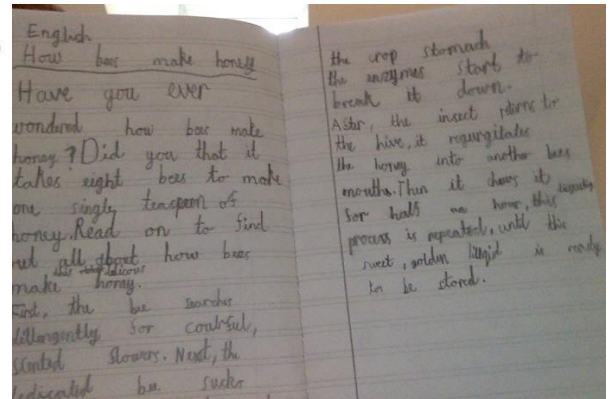 English
How bees make honey
Have you ever
wondered how bees make
honey? Did you that it
takes eight bees to make
one single teaspoon of
honey. Read on to find
out all about how bees
make this dilicous honey.
First, the bee searches
dillangently for coulsful,
scented flowers. Next, the
dedicated bee sucks
the crop stomach
the enzymes start to
break it down.
After, the insect returns to
the hive, it regurgitates
the honey into another bees
mouths. Then it chews it
for half an hour, this
process is repeated, until this
sweet, golden liquid is ready
to be stored.